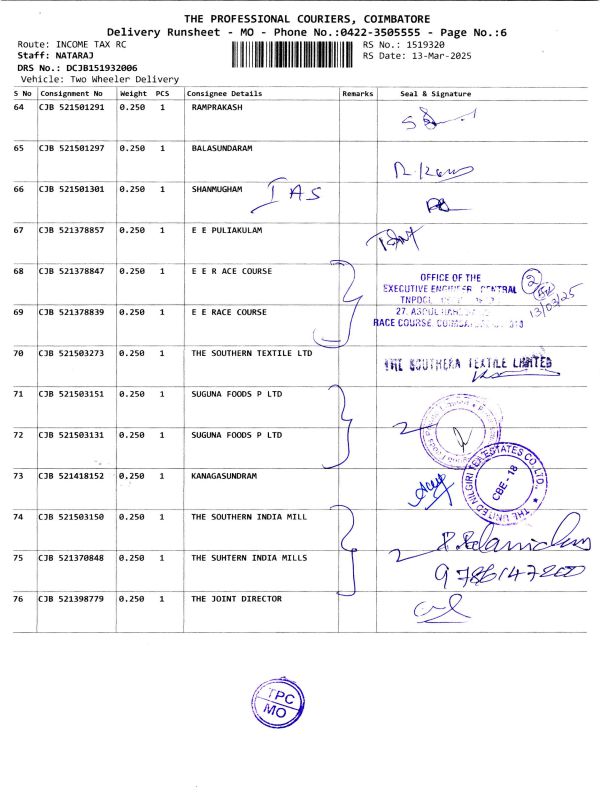 THE PROFESSIONAL COURIERS, COIMBATORE
Delivery Runsheet - MO - Phone No.:0422-3505555 - Page No.:6
Route: INCOME TAX RC RS No.: 1519320
Staff: NATARAJ RS Date: 13-Mar-2025
DRS No.: DCJB151932006
Vehicle: Two Wheeler Delivery
S No Consignment No Weight PCS Consignee Details Remarks Seal & Signature
64 CJB 521501291 0.250 1 RAMPRAKASH
65 CJB 521501297 0.250 1 BALASUNDARAM
66 CJB 521501301 0.250 1 SHANMUGHAM IAS
67 CJB 521378857 0.250 1 E E PULIAKULAM
68 CJB 521378847 0.250 1 E E R ACE COURSE
OFFICE OF THE
EXECUTIVE ENGINEER CENTRAL
2
13/03/25
69 CJB 521378839 0.250 1 E E RACE COURSE
RACE COURSE,
70 CJB 521503273 0.250 1 THE SOUTHERN TEXTILE LTD THE SOUTHERN TEXTILE LIMITED
71 CJB 521503151 0.250 1 SUGUNA FOODS P LTD
2
72 CJB 521503131 0.250 1 SUGUNA FOODS P LTD
73 CJB 521418152 0.250 1 KANAGASUNDRAM
THE UNITED NILGIRI TEA ESTATES CO. LTD.
CBE - 18
74 CJB 521503150 0.250 1 THE SOUTHERN INDIA MILL
75 CJB 521370848 0.250 1 THE SUHTERN INDIA MILLS
2
76 CJB 521398779 0.250 1 THE JOINT DIRECTOR
TPC
MO